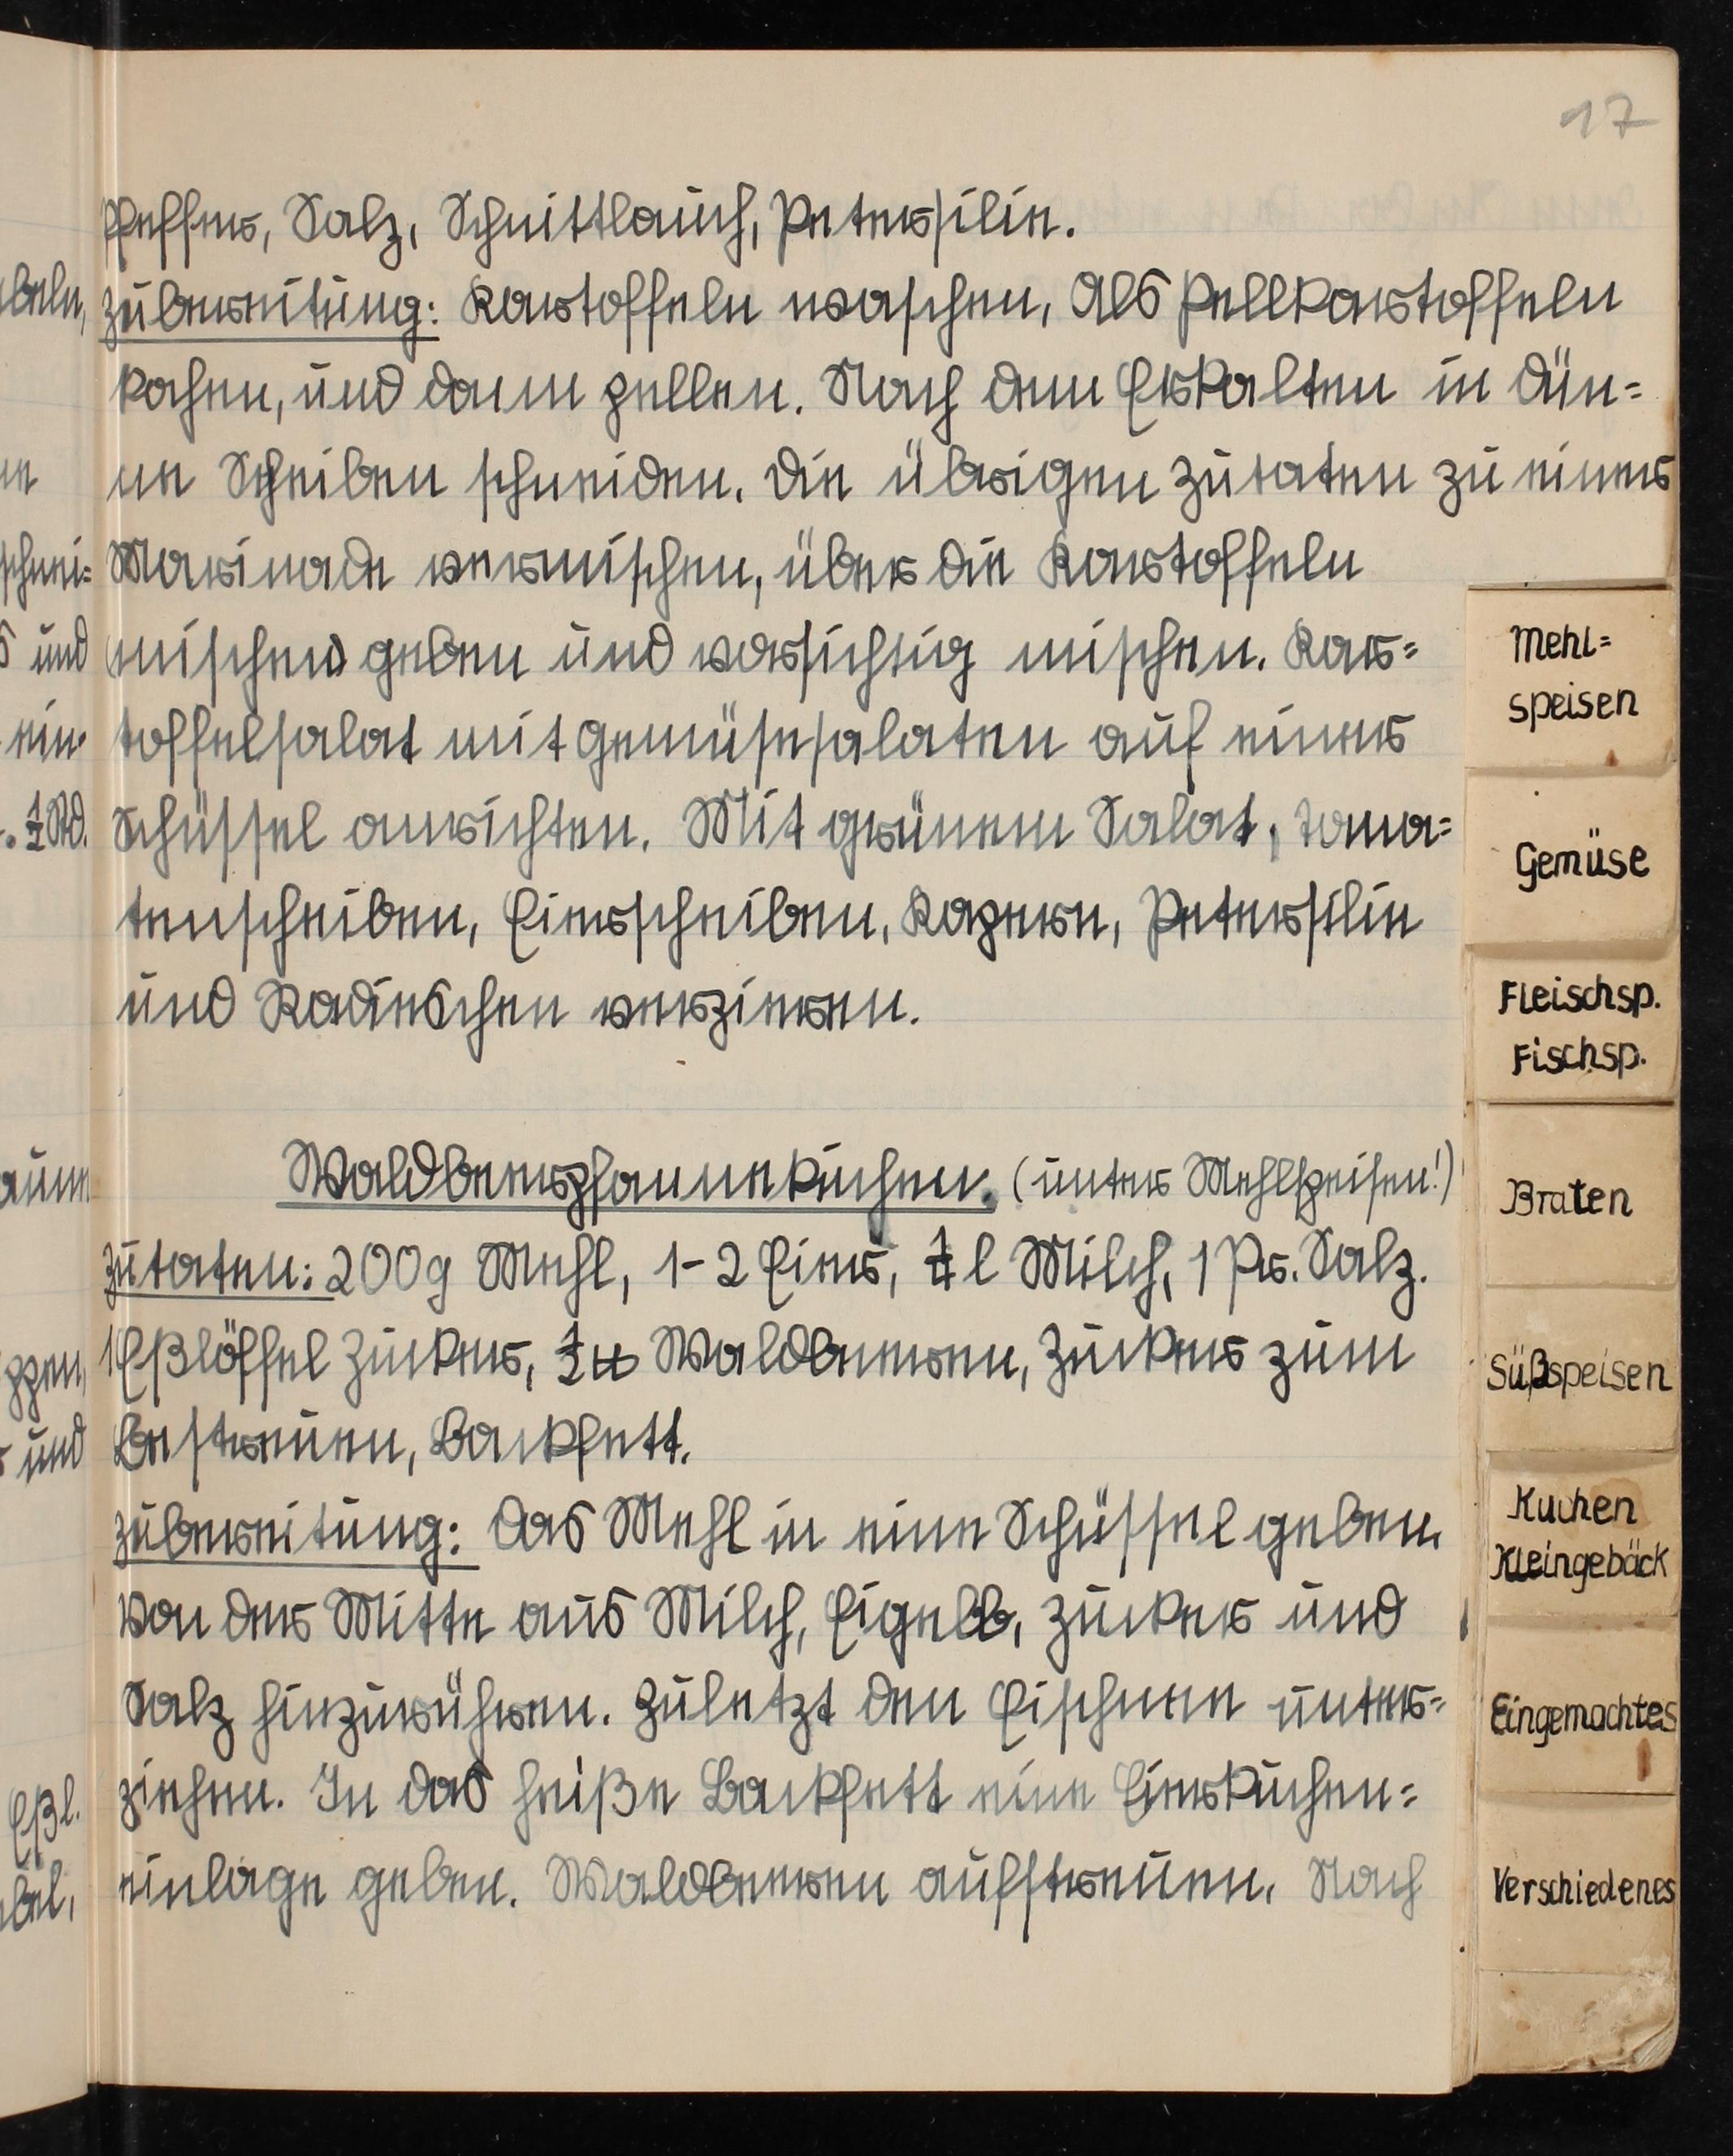 17
Pfeffer, Salz, Schnittlauch, Petersilie.
Zubereitung: Kartoffeln waschen, Als Pellkartoffeln
kochen, und dann pellen. Nach dem Erkalten in dün=
ne Scheiben schneiden. Die übrigen Zutaten zu einer
Marinade vermischen, über die Kartoffeln
mischen geben und vorsichtig mischen. Kar=
toffelsalat mit Gemüsesalaten auf einer
Schüssel anrichten. Mit grünem Salat, Toma=
tenscheiben, Eierscheiben, Kapern, Petersilie
und Radieschen verzieren.
Waldbeerpfannekuchen. (unter Mehlspeisen!)
Zutaten: 200g Mehl, 1-2 Eier, 1/4 l Milch, 1 Pr. Salz.
1 Eßlöffel Zucker, 1/2 ℔ Waldbeeren, Zucker zum
Bestreuen, Backfett.
Zubereitung: Das Mehl in eine Schüssel geben.
Von der Mitte aus Milch, Eigelb, Zucker und
Salz hinzurühren. Zuletzt den Eischnee unter=
ziehen. In das heiße Backfett eine Eierkuchen=
einlage geben. Waldbeeren aufstreuen. Nach
Mehl=
speisen
Gemüse
Fleischsp.
Fischsp.
Braten
Süßspeisen
Kuchen
Kleingebäck
Eingemachtes
Verschiedenes